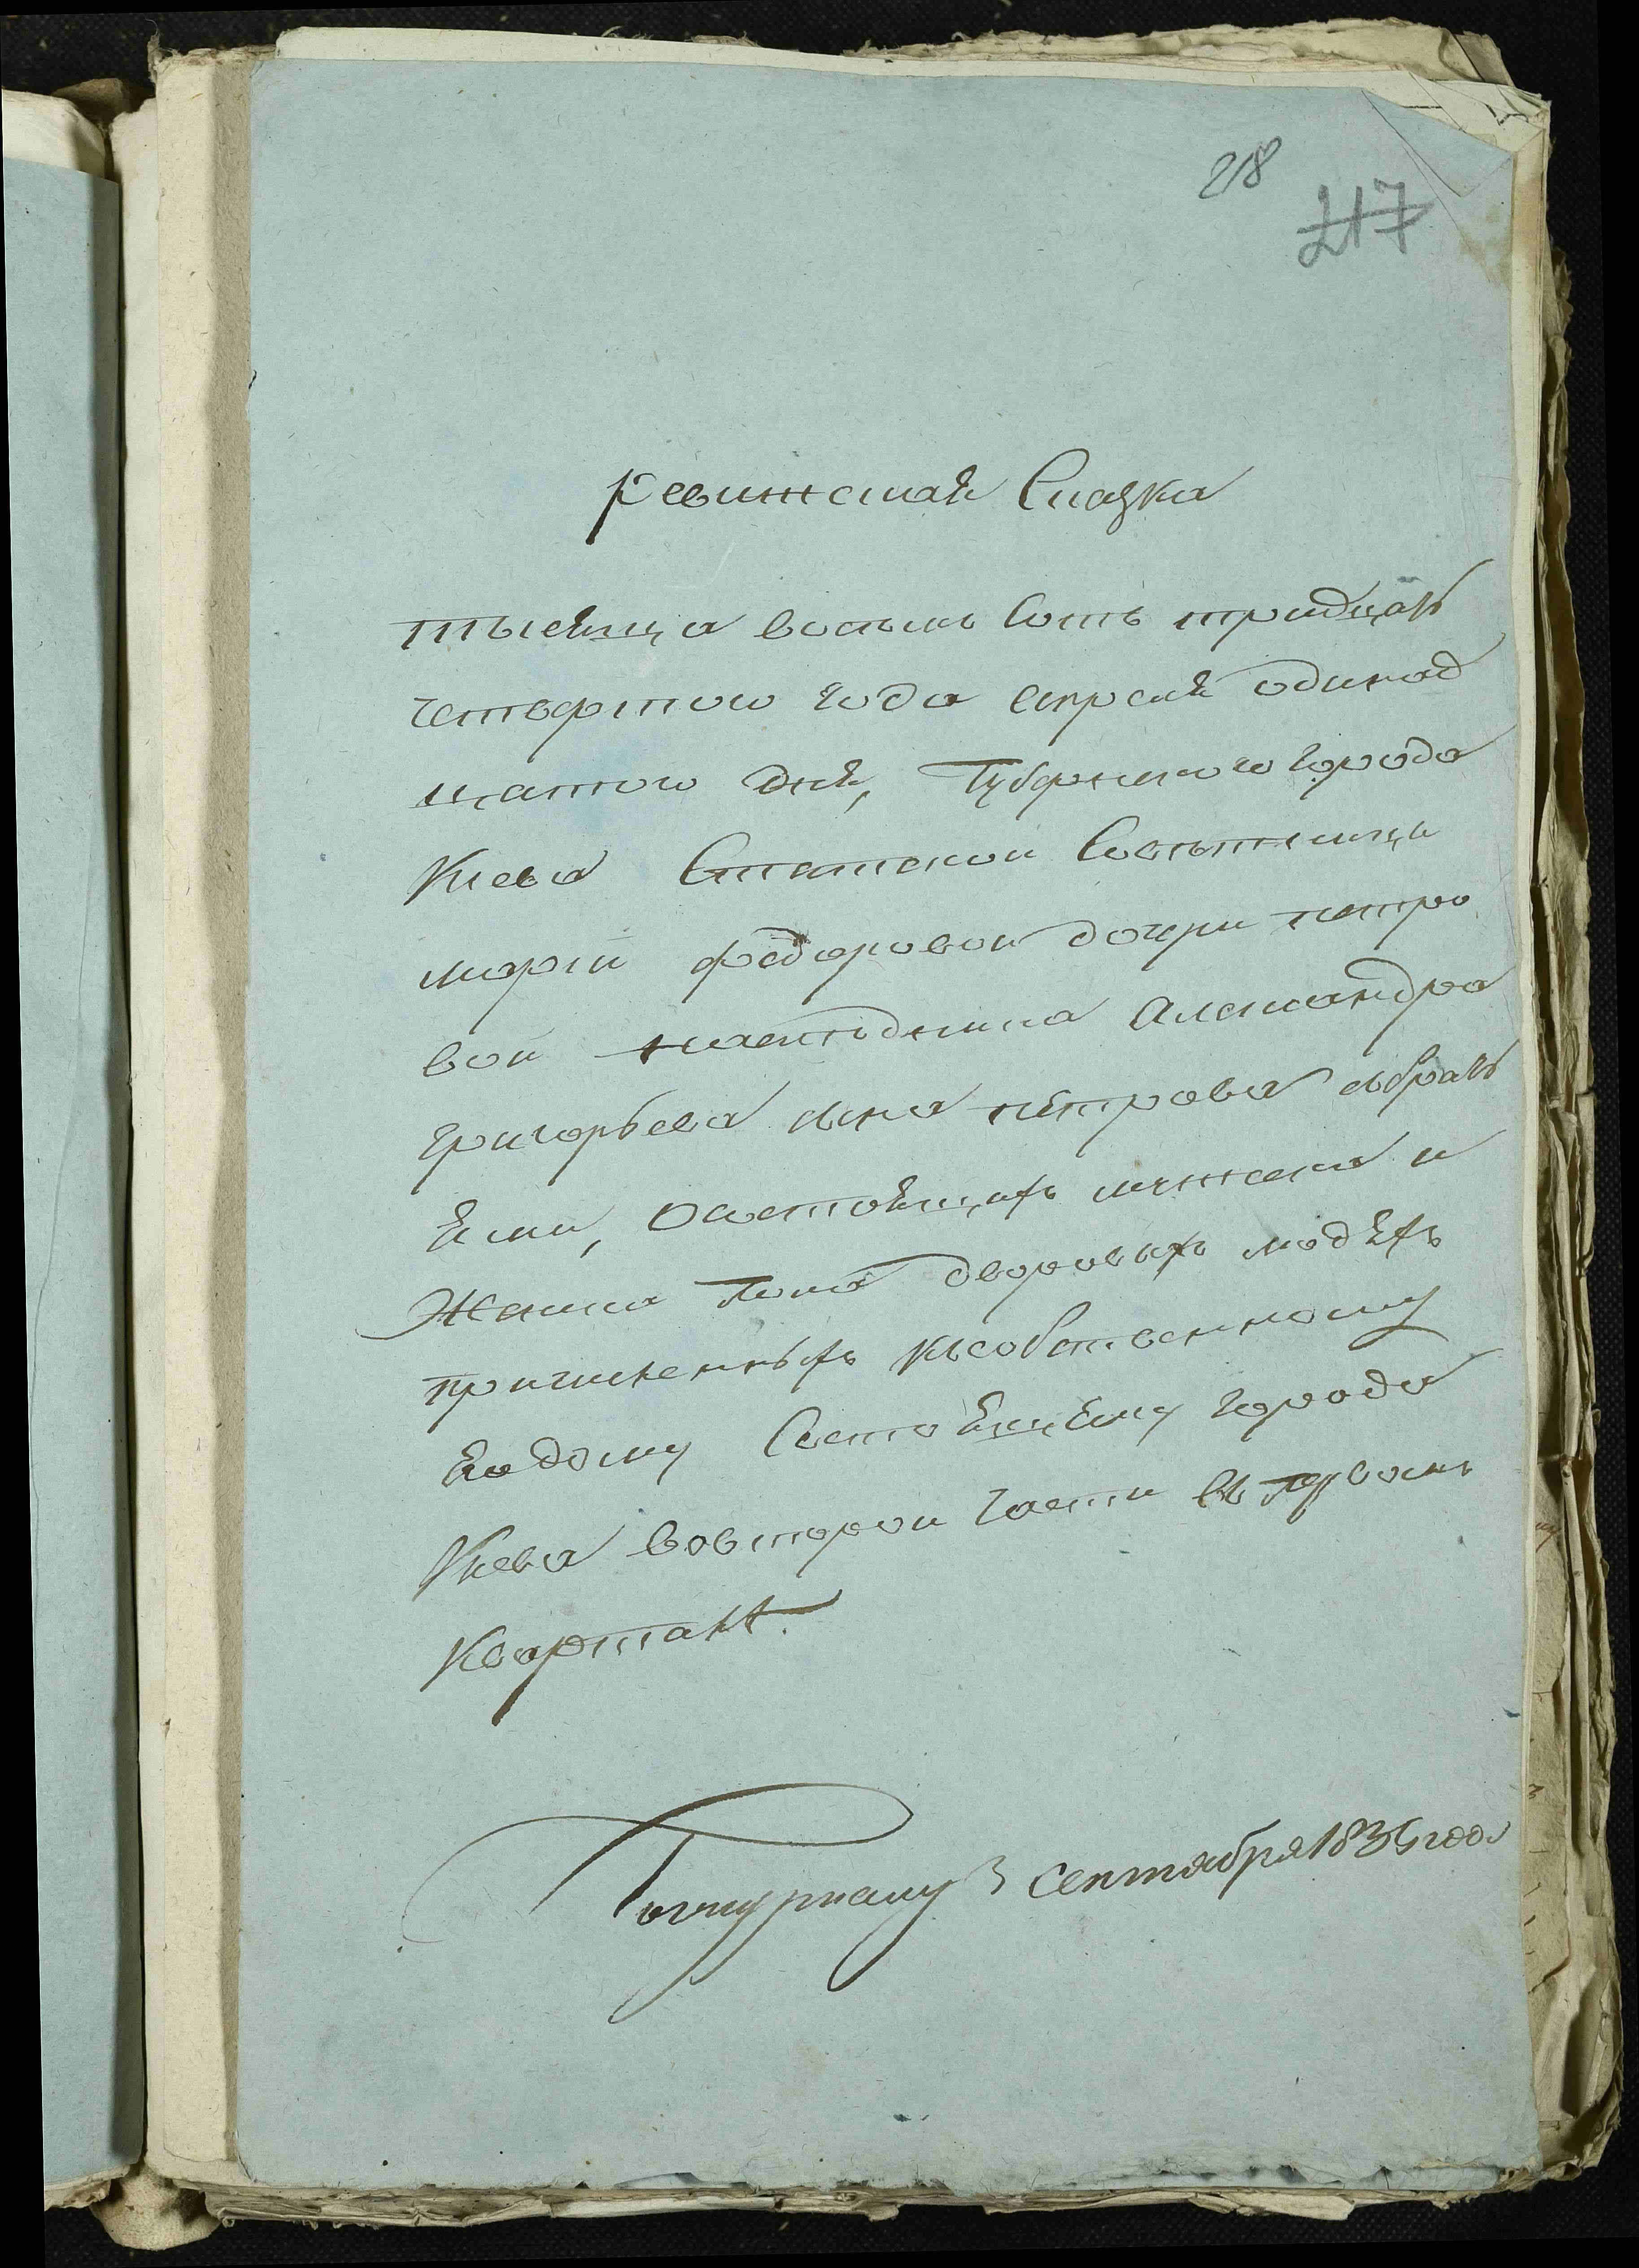 218
217
Ревижская Сказка
тысяща восемь сотъ тридцать
четвертого года апреля одинад
цатого дня, Губернского города
Киева Статской Советницы
марїи федоровой дочри петро
вой наследника Александра
григорьева сына петрова збрать
ями, осостоящихъ мужеска и
Женска пола дворовыхъ людяхъ
причисленныхъ ксобственному
Ея дому Состоящему города
Киева вовторой части въ первомъ
Квартале.
3 сентября 1834 года